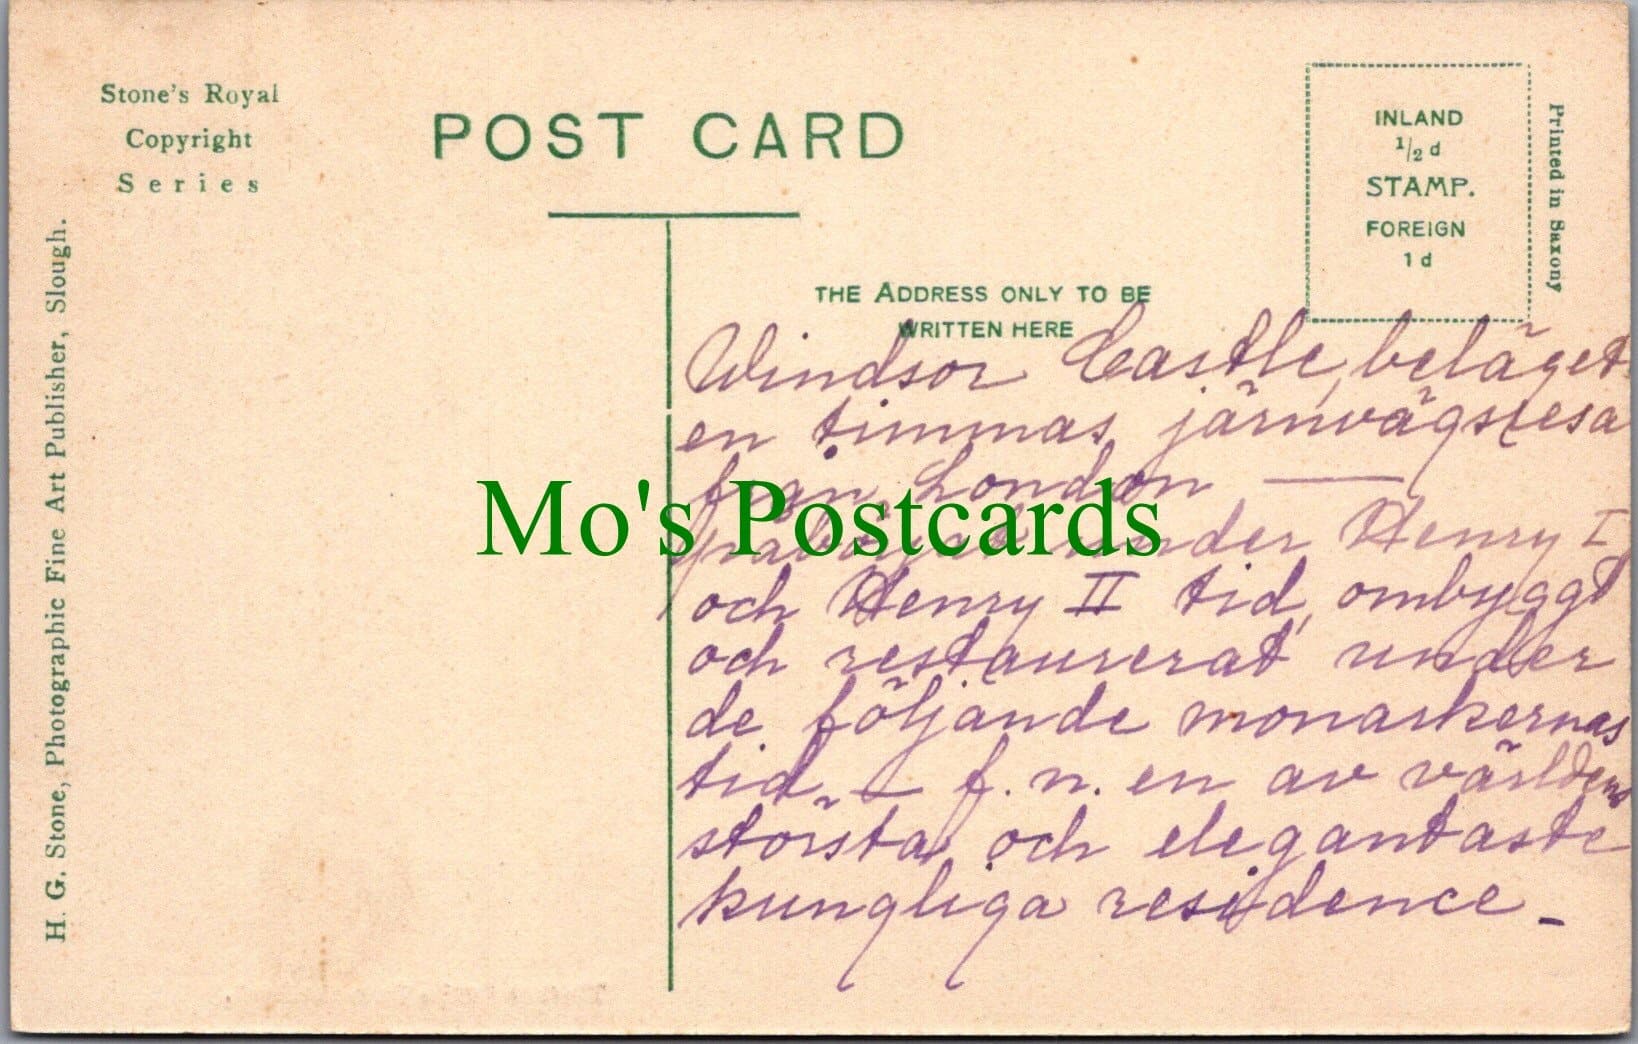 Stone's Royal
Copyright
Series
POST CARD
INLAND
1/2 d
STAMP.
FOREIGN
1 d
Printed in Saxony
THE ADDRESS ONLY TO BE
WRITTEN HERE
H. G. Stone, Photographic Fine Art Publisher, Slough.
Windsor Castle, beläget
en timmas järnvägsresa
från London —
Mo's Postcards
under Henry I
och Henry II tid, ombyggt
och restaurerat under
de följande monarkernas
tid. — f. n. en av världens
största och elegantaste
kungliga residence _